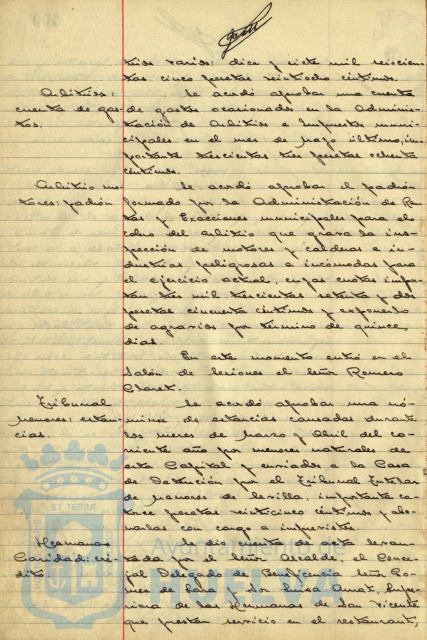 trios varios: diez y siete mil seiscien-
tas cinco pesetas veintiocho céntimos.
Arbitrios:
cuenta de gas-
tos.
Se acordó aprobar una cuenta
de gastos ocasionados en la Adminis-
tración de Arbitrios e Impuestos muni-
cipales en el mes de Mayo último, im-
portante trescientas tres pesetas ochenta
céntimos.
Arbitrio mo-
tores: padrón
Se acordó aprobar el padrón
formado por la Administración de Ren-
tas y Exacciones municipales para el
cobro del arbitrio que grava la ins-
pección de motores y calderas e in-
dustrias peligrosas e incómodas para
el ejercicio actual, cuyas cuotas impor-
tan tres mil trescientas setenta y dos
pesetas cincuenta céntimos y exponerlo
de agravios por término de quince
días.
En este momento entró en el
Salón de Sesiones el Señor Romero
Claret.
Tribunal
Menores: estan-
cias.
Se acordó aprobar una nó-
mina de estancias causadas durante
los meses de Marzo y Abril del co-
rriente año por menores naturales de
esta Capital y enviados a la Casa
de Detención por el Tribunal Tutelar
de Menores de Sevilla, importante ca-
torce pesetas veinticinco céntimos y abo-
narlas con cargo a imprevistos.
Hermanas
Caridad: cré-
dito.
Se dio cuenta de acta levan-
tada por el Señor Alcalde, el Conce-
jal Delegado de Beneficencia Señor Go-
mez de Lara y Sor Luisa Amat, Supe-
riora de las Hermanas de San Vicente
que prestan servicio en el restaurant,
Ayuntamiento de
HUELVA